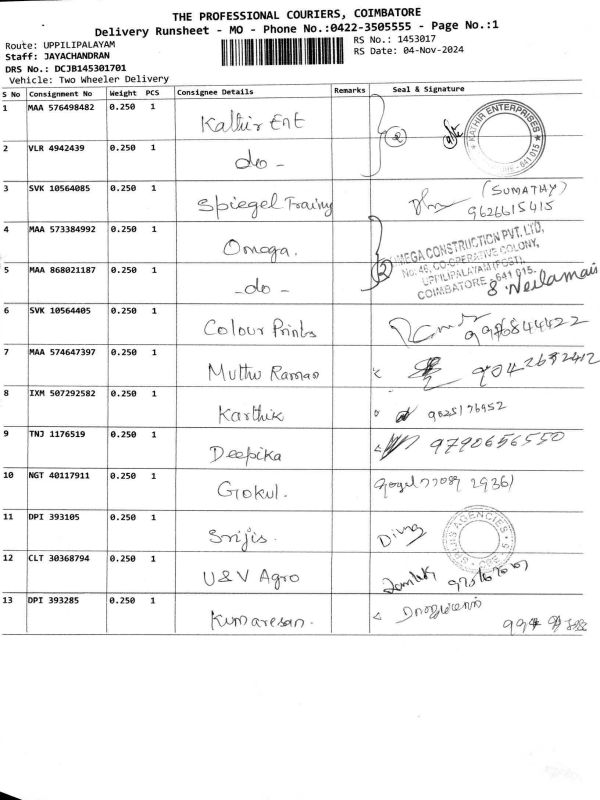 THE PROFESSIONAL COURIERS, COIMBATORE
Delivery Runsheet - MO - Phone No.:0422-3505555 - Page No.:1
Route: UPPILIPALAYAM
RS No.: 1453017
Staff: JAYACHANDRAN
RS Date: 04-Nov-2024
DRS No.: DCJB145301701
Vehicle: Two Wheeler Delivery
S No Consignment No Weight PCS Consignee Details Remarks Seal & Signature
1 MAA 576498482 0.250 1 Kathir Ent 2 KATHIR ENTERPRISES 641 015
2 VLR 4942439 0.250 1 do -
3 SVK 10564085 0.250 1 Spiegel Trainy (SUMATHY)
9626615415
4 MAA 573384992 0.250 1 Omega. 2
OMEGA CONSTRUCTION PVT. LTD,
No: 46, CO-OPERATIVE COLONY,
UPPILIPALAYAM (POST),
COIMBATORE - 641 015.
5 MAA 868021187 0.250 1 - do -
6 SVK 10564405 0.250 1 Colour Prints 9976844422
7 MAA 574647397 0.250 1 Muthu Raman
8 IXM 507292582 0.250 1 Karthik
9 TNJ 1176519 0.250 1 Deepika 9790656550
10 NGT 40117911 0.250 1 Gokul.
11 DPI 393105 0.250 1 Srijis. SRIJIS AGENCIES CBE - 5
12 CLT 30368794 0.250 1 U&V Agro
13 DPI 393285 0.250 1 Kumaresan.